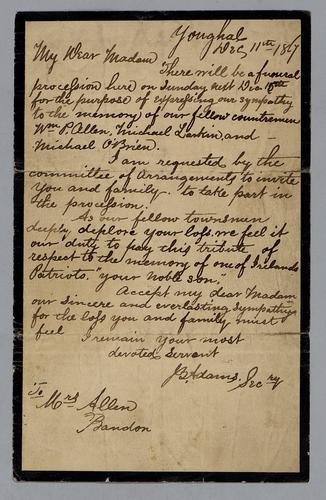 Youghal
Dec, 11th 1867
My Dear Madam
There will be a funeral
procession here on Sunday next Dec 15th
for the purpose of expressing our sympathy
to the memory of our fellow countrymen
Wm P. Allen, Michael Larkin, and
Michael O'Brien.
I am requested by the
committee of Arrangements to invite
you and family to take part in
the procession.
As our fellow townsmen
deeply deplore your loss, we feel it
our duty to pay this tribute of
respect to the memory of one of Irelands
Patriots, "your Noble son."
Accept my dear Madam
our sincere and everlasting sympathy
for the loss you and family must
feel
I remain your most
devoted servant
Adams. Secry
To
Mrs Allen
Bandon